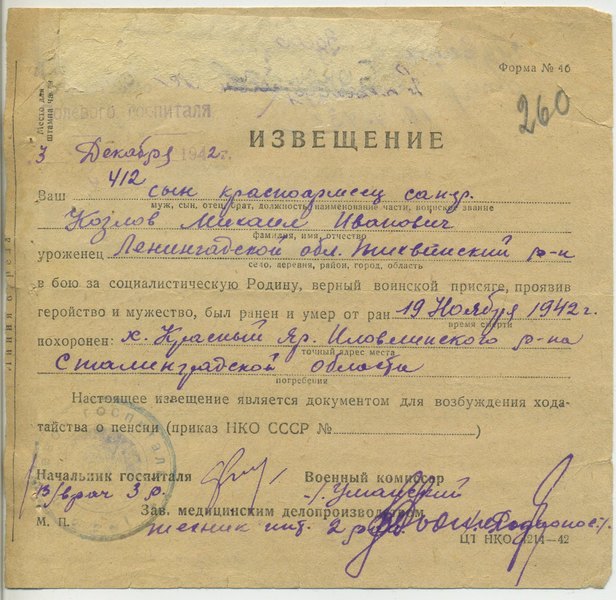 Форма № 46
Место для штампа части
полевого госпиталя
260
ИЗВЕЩЕНИЕ
3 Декабря 1942г.
412
Ваш сын красноармеец сандр.
муж, сын, отец, брат, должность, наименование части, воинское звание
Козлов Михаил Иванович
фамилия, имя, отчество
уроженец Ленинградской обл. Тихвинский р-н
село, деревня, район, город, область
в бою за социалистическую Родину, верный воинской присяге, проявив
геройство и мужество, был ранен и умер от ран 19 Ноября 1942 г.
время смерти
похоронен: х. Красный Яр. Иловлинского р-на
точный адрес места
Сталинградской области
погребения
Настоящее извещение является документом для возбуждения хода-
тайства о пенсии (приказ НКО СССР № )
Начальник госпиталя Военный комиссор
в/врач 3 р. /Уманский
Зав. медицинским делопроизводством
М. П. техник инт. 2 р.
ЦТ НКО 4214—42